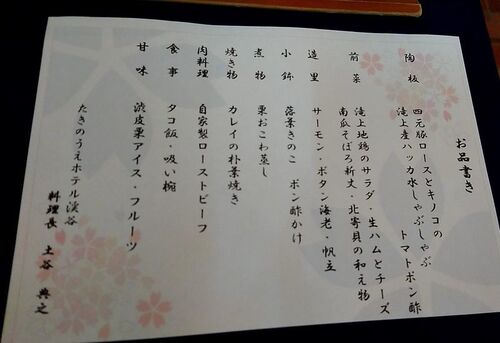 お品書き
陶板 四元豚ロースとキノコの
滝上産ハッカ水しゃぶしゃぶ
トマトポン酢
前菜 滝上地鶏のサラダ・生ハムとチーズ
南瓜そぼろ新丈・北寄貝の和え物
造里 サーモン・ボタン海老・帆立
小鉢 落葉きのこ ポン酢かけ
煮物 栗おこわ蒸し
焼き物 カレイの朴葉焼き
肉料理 自家製ローストビーフ
食事 タコ飯・吸い椀
甘味 渋皮栗アイス・フルーツ
たきのうえホテル渓谷
料理長 土谷 典之